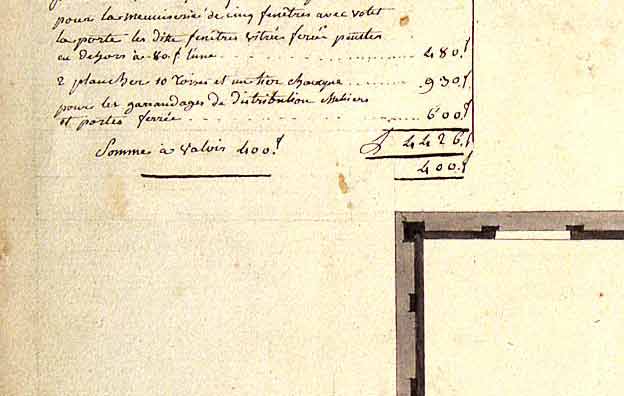 pour la menuiserie de cinq fenêtres avec volet
la porte les ditte fenêtres vitrés ferrés peintes
en dehors à 80.f l'une 480.f
2 plancher 10 Toises et un tier chacque 930.f
pour les garandages de distribution cheliers
et portes ferrée 600.f
4426.f
Somme à valoir 400.f
400.f